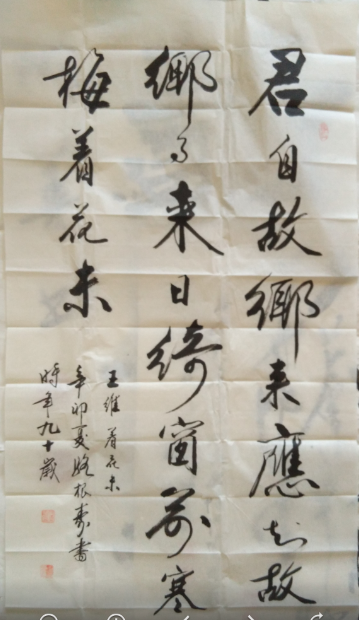 君自故鄉来應知故
鄉事来日綺窗前寒
梅着花未
王維 着花未
辛卯夏 根壽書
時年九十歲